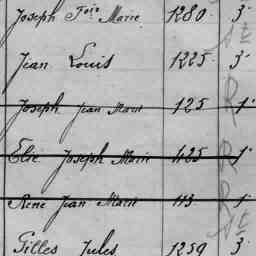 Joseph Fois Marie 1280 3e
Jean Louis 1225 3e
Joseph Jean Marie 125 1e
Elie Joseph Marie 425 1e
Rene Jean Marie 113 1e
Gilles Jules 1259 3e